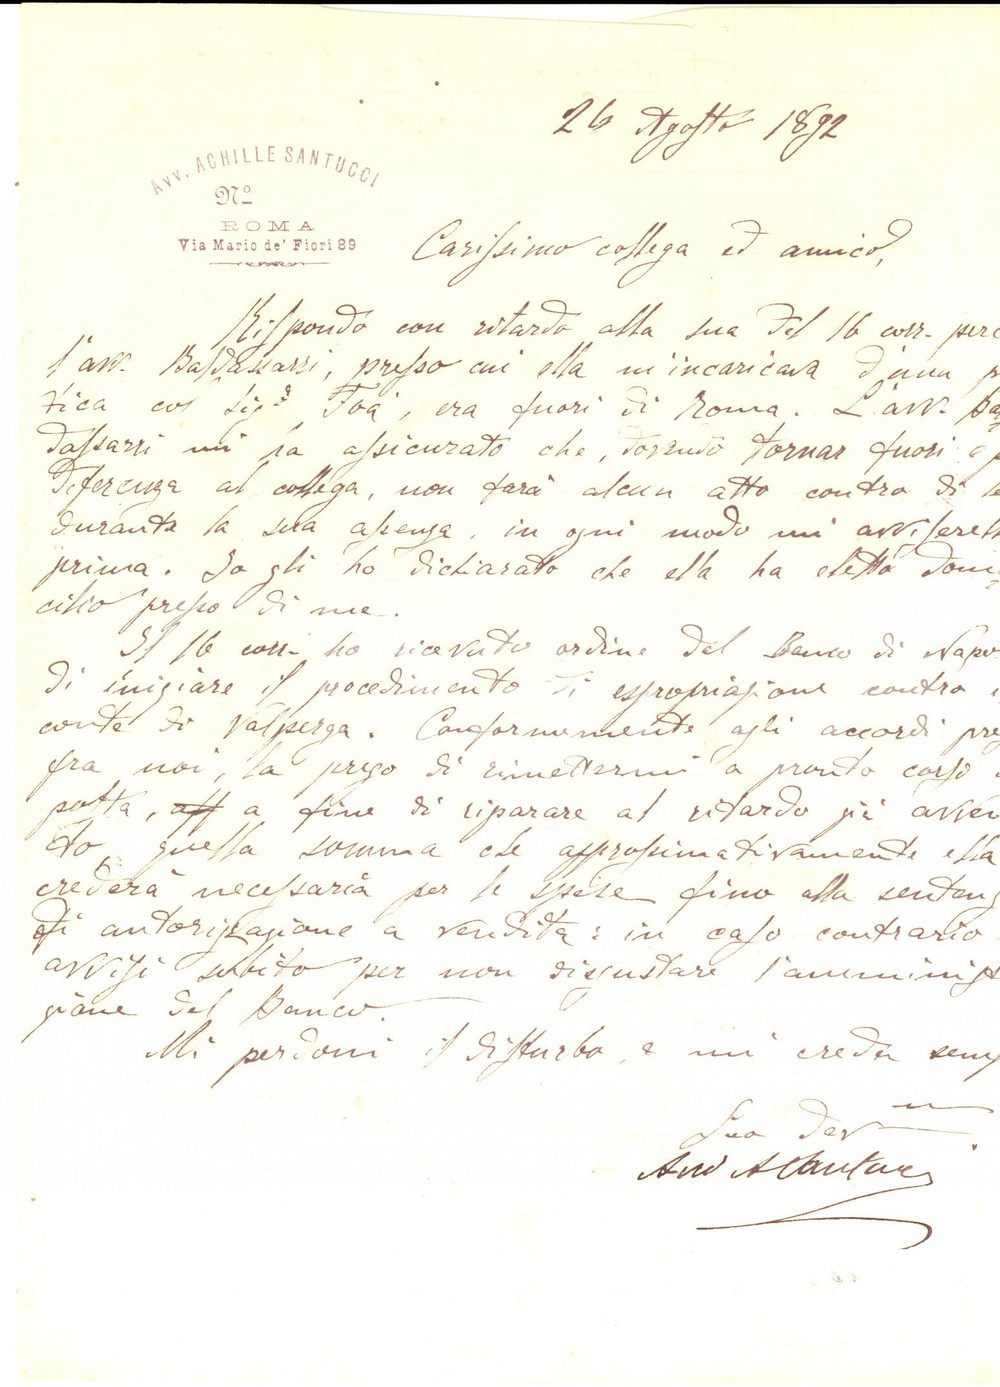 26 Agosto 1892
Avv. ACHILLE SANTUCCI
No
ROMA
Via Mario de' Fiori 89
Carissimo collega ed amico,
Rispondo con ritardo alla sua del 16 corr. perc
l'avv. Baldassarri, presso cui ella m'incaricava d'una pr
tica col Sigr Foà, era fuori di Roma. L'avv. Bal
dassarri mi ha assicurato che, dovendo tornar fuori e p
deferenza al collega, non farà alcun atto contro di le
durante la sua assenza, in ogni modo mi avviserebb
prima. Io gli ho dichiarato che ella ha eletto domi
cilio presso di me.
Il 16 corr. ho ricevuto ordine dal Banco di Napo
di iniziare il procedimento di espropriazione contro i
conte di Valperga. Conformemente agli accordi pre
fra noi, la prego di rimettermi a pronto corso
posta, a fine di riparare al ritardo già avven
to, quella somma che approssimativamente ella
crederà necessaria per le spese fino alla sentenz
di autorizzazione a vendita: in caso contrario
avvisi subito per non disgustare l'amminist
zione del Banco.
Mi perdoni il disturbo, e mi creda semp
Suo dev
Avv A Santucci